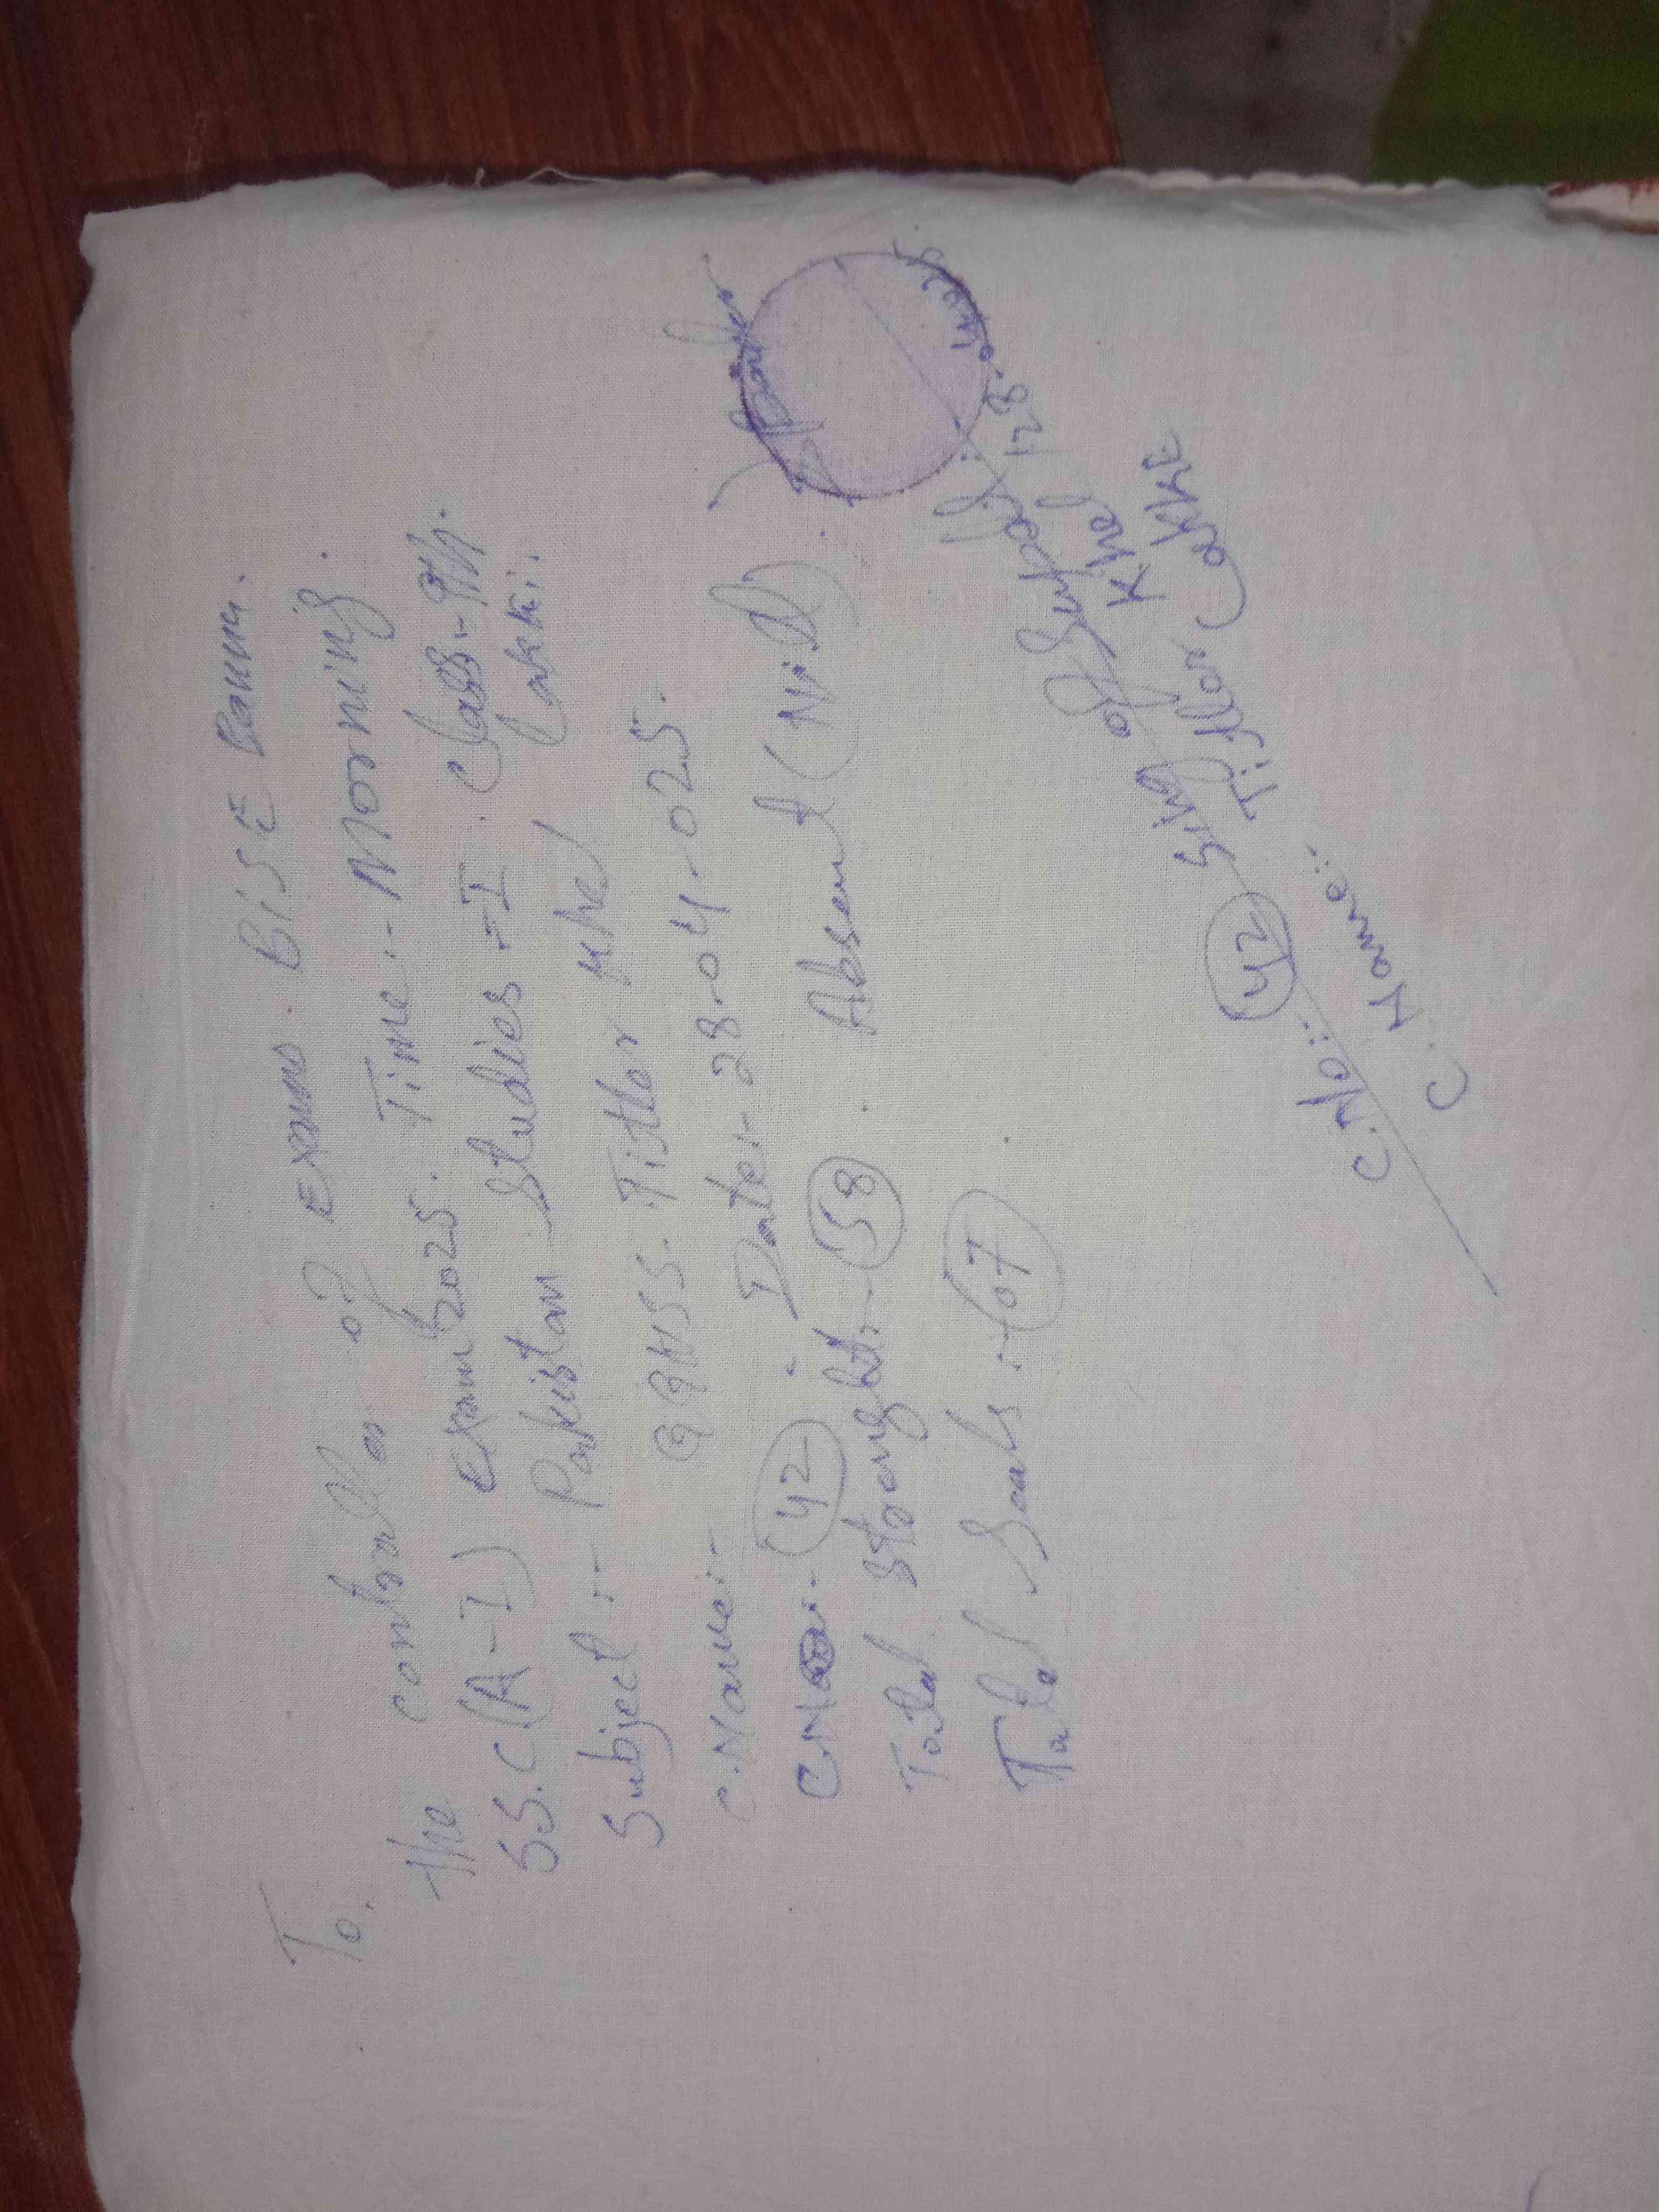 To,
The Controller of Exam BISE Bannu.
SS.C(A-I) Exam 2025. Time:- Morning.
Subject:- Pakistan Studies-I. Class:-9th.
C.Name:- GGHSS. Titter Khel Lakki.
C.No:- 42. Date:- 28-04-025.
Total Strenght:- 58. Absent (Nil).
Total Seals:- 07
Sig of Supdt:
28.04.25
C.No:: 42
C. Name:: Titter Khel